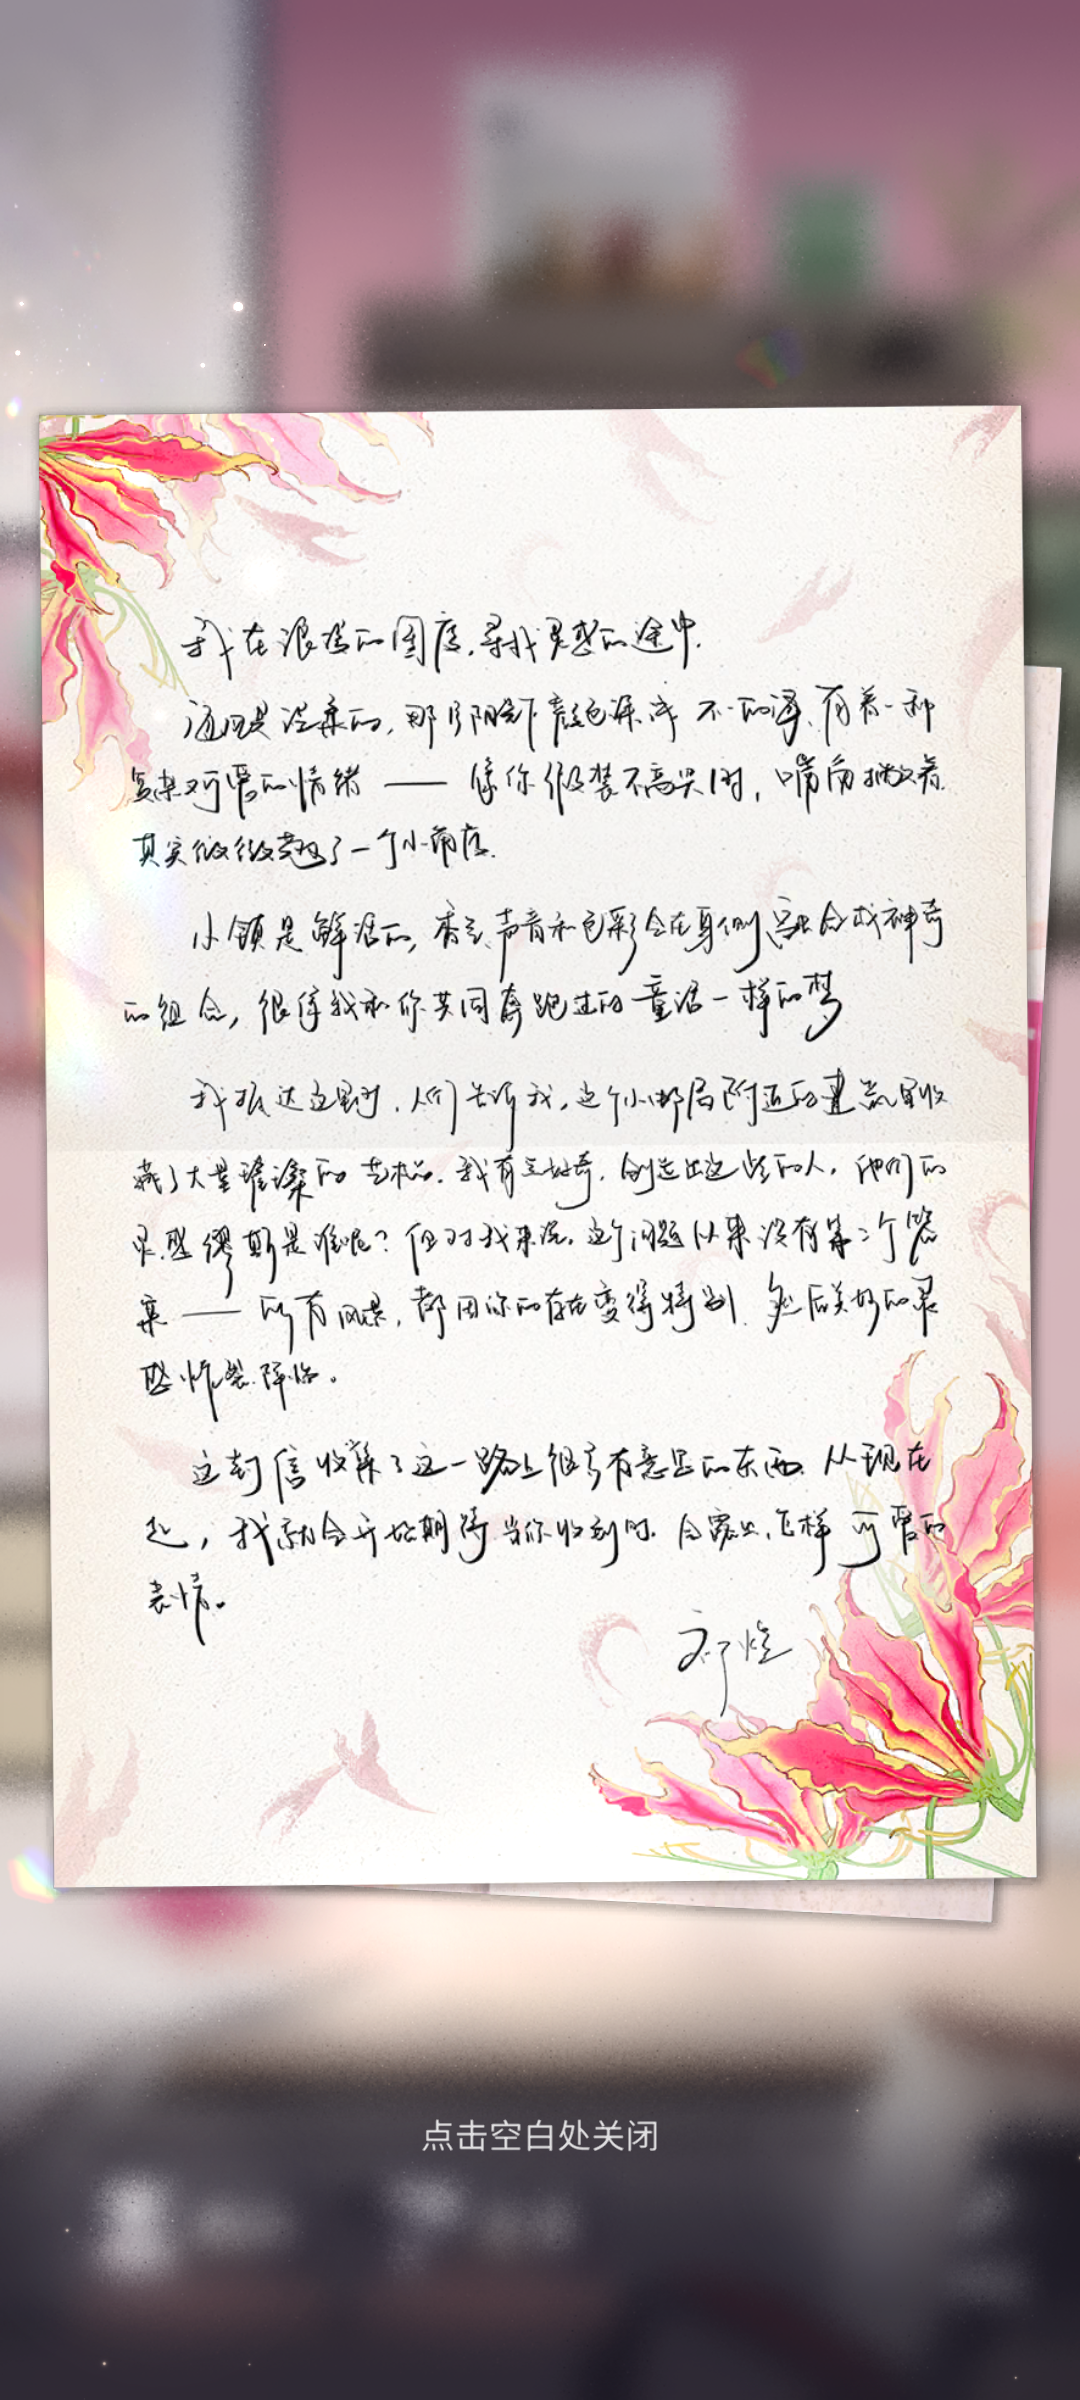 我在浪漫的国度,寻找灵感的途中.
这风是温柔的,那阴晴下颜色深浅不一的海,有着一种
复杂又可爱的情绪——像你假装不高兴时,嘴角撇着
其实微微翘了一个小角度.
小镇是鲜活的,香气、声音和色彩会在身侧融合成神奇
的组合,很像我和你共同奔跑过的童话一样的梦
我抵达这里时,人们告诉我,这个小邮局附近的建筑里收
藏了大量璀璨的艺术品.我有点好奇,创造出这些的人,他们的
灵感缪斯是谁呢?但对我来说,这个问题从来没有第二个答
案——所有风景,都因你的存在变得特别.然后美好的灵
感炸裂降临。
这封信收集了这一路上很多有意思的东西.从现在
起,我就会开始期待当你收到时.会露出怎样可爱的
表情。
祁煜
点击空白处关闭